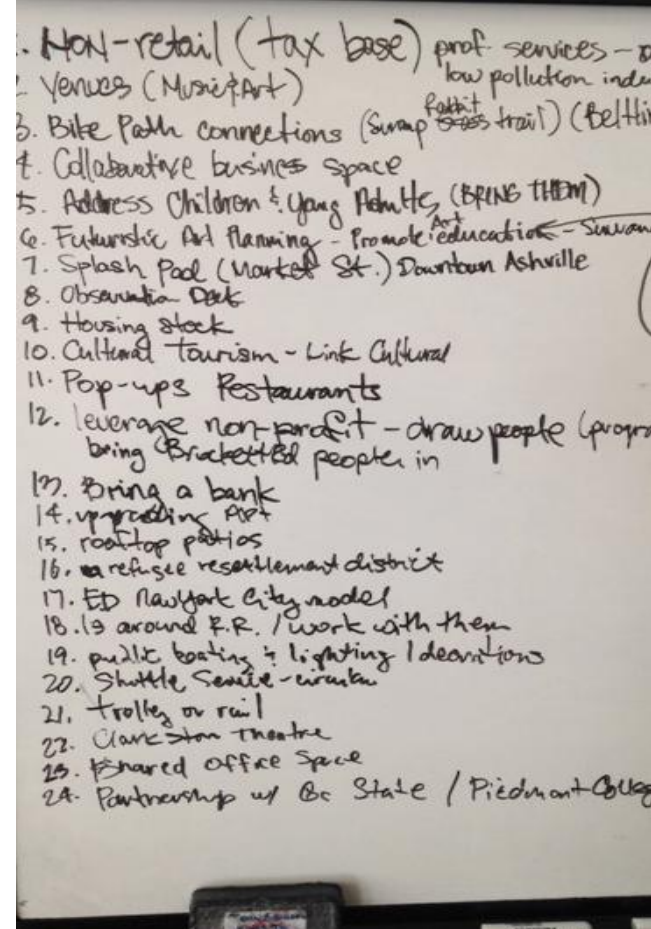 1. NON-retail (tax base) prof. services -
low pollution
2. Venues (Music & Art)
3. Bike Path connections (Swamp Rabbit trail) (Beltli
4. Collaborative business space
5. Address Children & Young Adults (BRING THEM)
6. Futuristic Art Planning - Promote Art education - Suwan
7. Splash Pool (Market St.) Downtown Ashville
8. Observation Deck
9. Housing stock
10. Cultural Tourism - Link Cultural
11. Pop-ups Restaurants
12. leverage non-profit - draw people (progra
bring people in
13. Bring a bank
14. upgrading Apt
15. rooftop patios
16. refugee resettlement district
17. ED New York City model
18. around R.R. / work with them
19. public & lighting /
20. Shuttle Service -
21. Trolley or rail
22. Clarkston Theatre
23. Shared office Space
24. Partnership w/ State / Piedmont Colleg